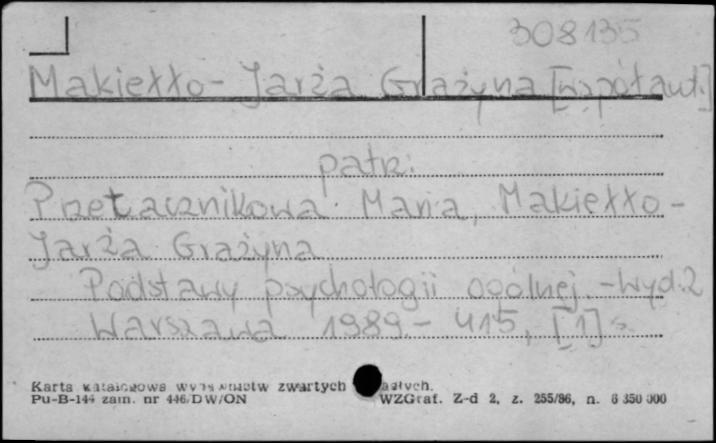 308135
Makiełło-Jarża Grażyna [współaut.]
patrz:
Przetacznikowa Maria, Makiełło-
Jarża Grażyna
Podstawy psychologii ogólnej. - Wyd. 2
Warszawa 1989. - 415, [1] s.
Karta katalogowa wydawnictw zwartych
Pu-B-144 zam. nr 446/DW/ON WZGraf. Z-d 2, z. 255/86, n. 6 350 000